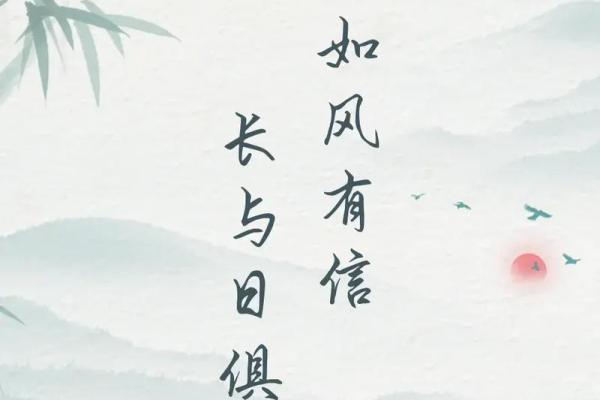 如风有信
长与日俱